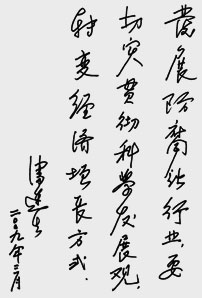 發展防腐蚀行业,要
切实贯彻科学发展观,
转变经济增长方式.
二〇〇九年三月